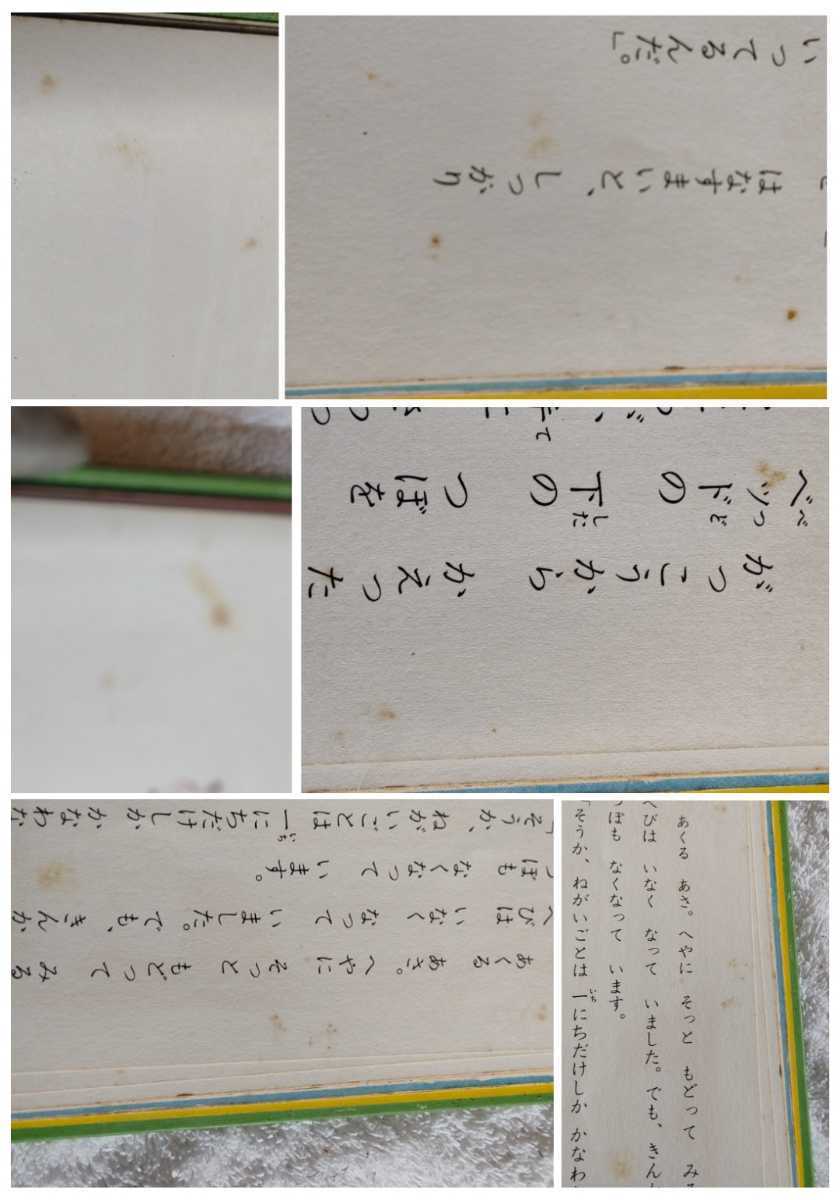 はなすまいと、しっかり
いってるんだ。」
がっこうから かえった
ベッドの 下の つぼを
べっど
した
あくる あさ。へやに そっと もどって みる
へびは いなく なって いました。でも、きんか
つぼも なくなって います。
「そうか、ねがいごとは 一にちだけしか かなわな
いち
あくる あさ。へやに そっと もどって みる
へびは いなく なって いました。でも、きん
つぼも なくなって います。
「そうか、ねがいごとは 一にちだけしか かなわ
いち